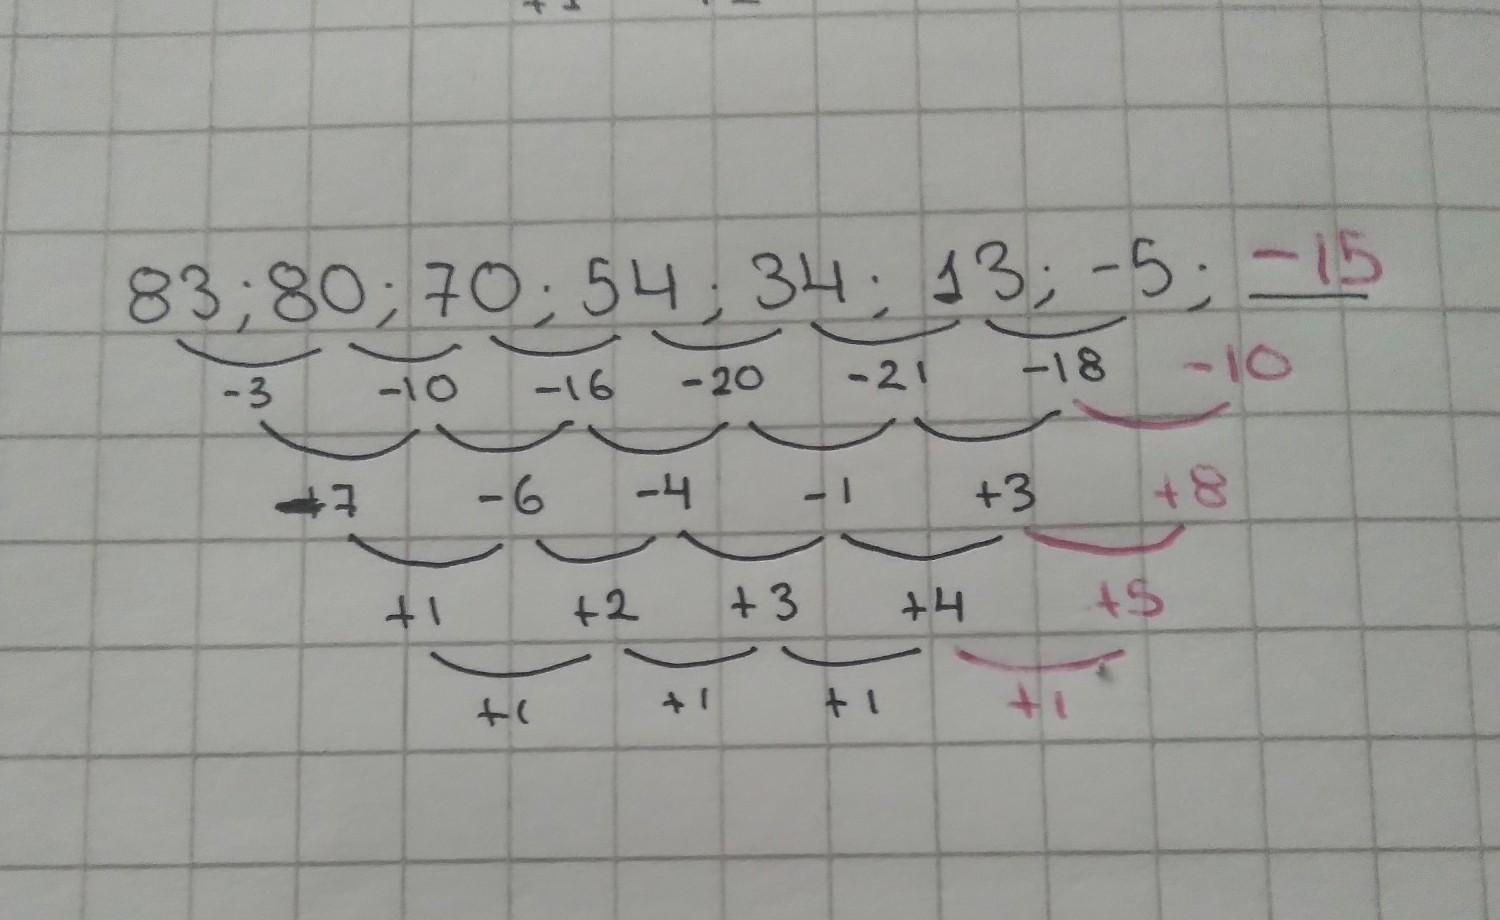 83; 80; 70; 54; 34; 13; -5; -15
-3 -10 -16 -20 -21 -18 -10
-7 -6 -4 -1 +3 +8
+1 +2 +3 +4 +5
+1 +1 +1 +1